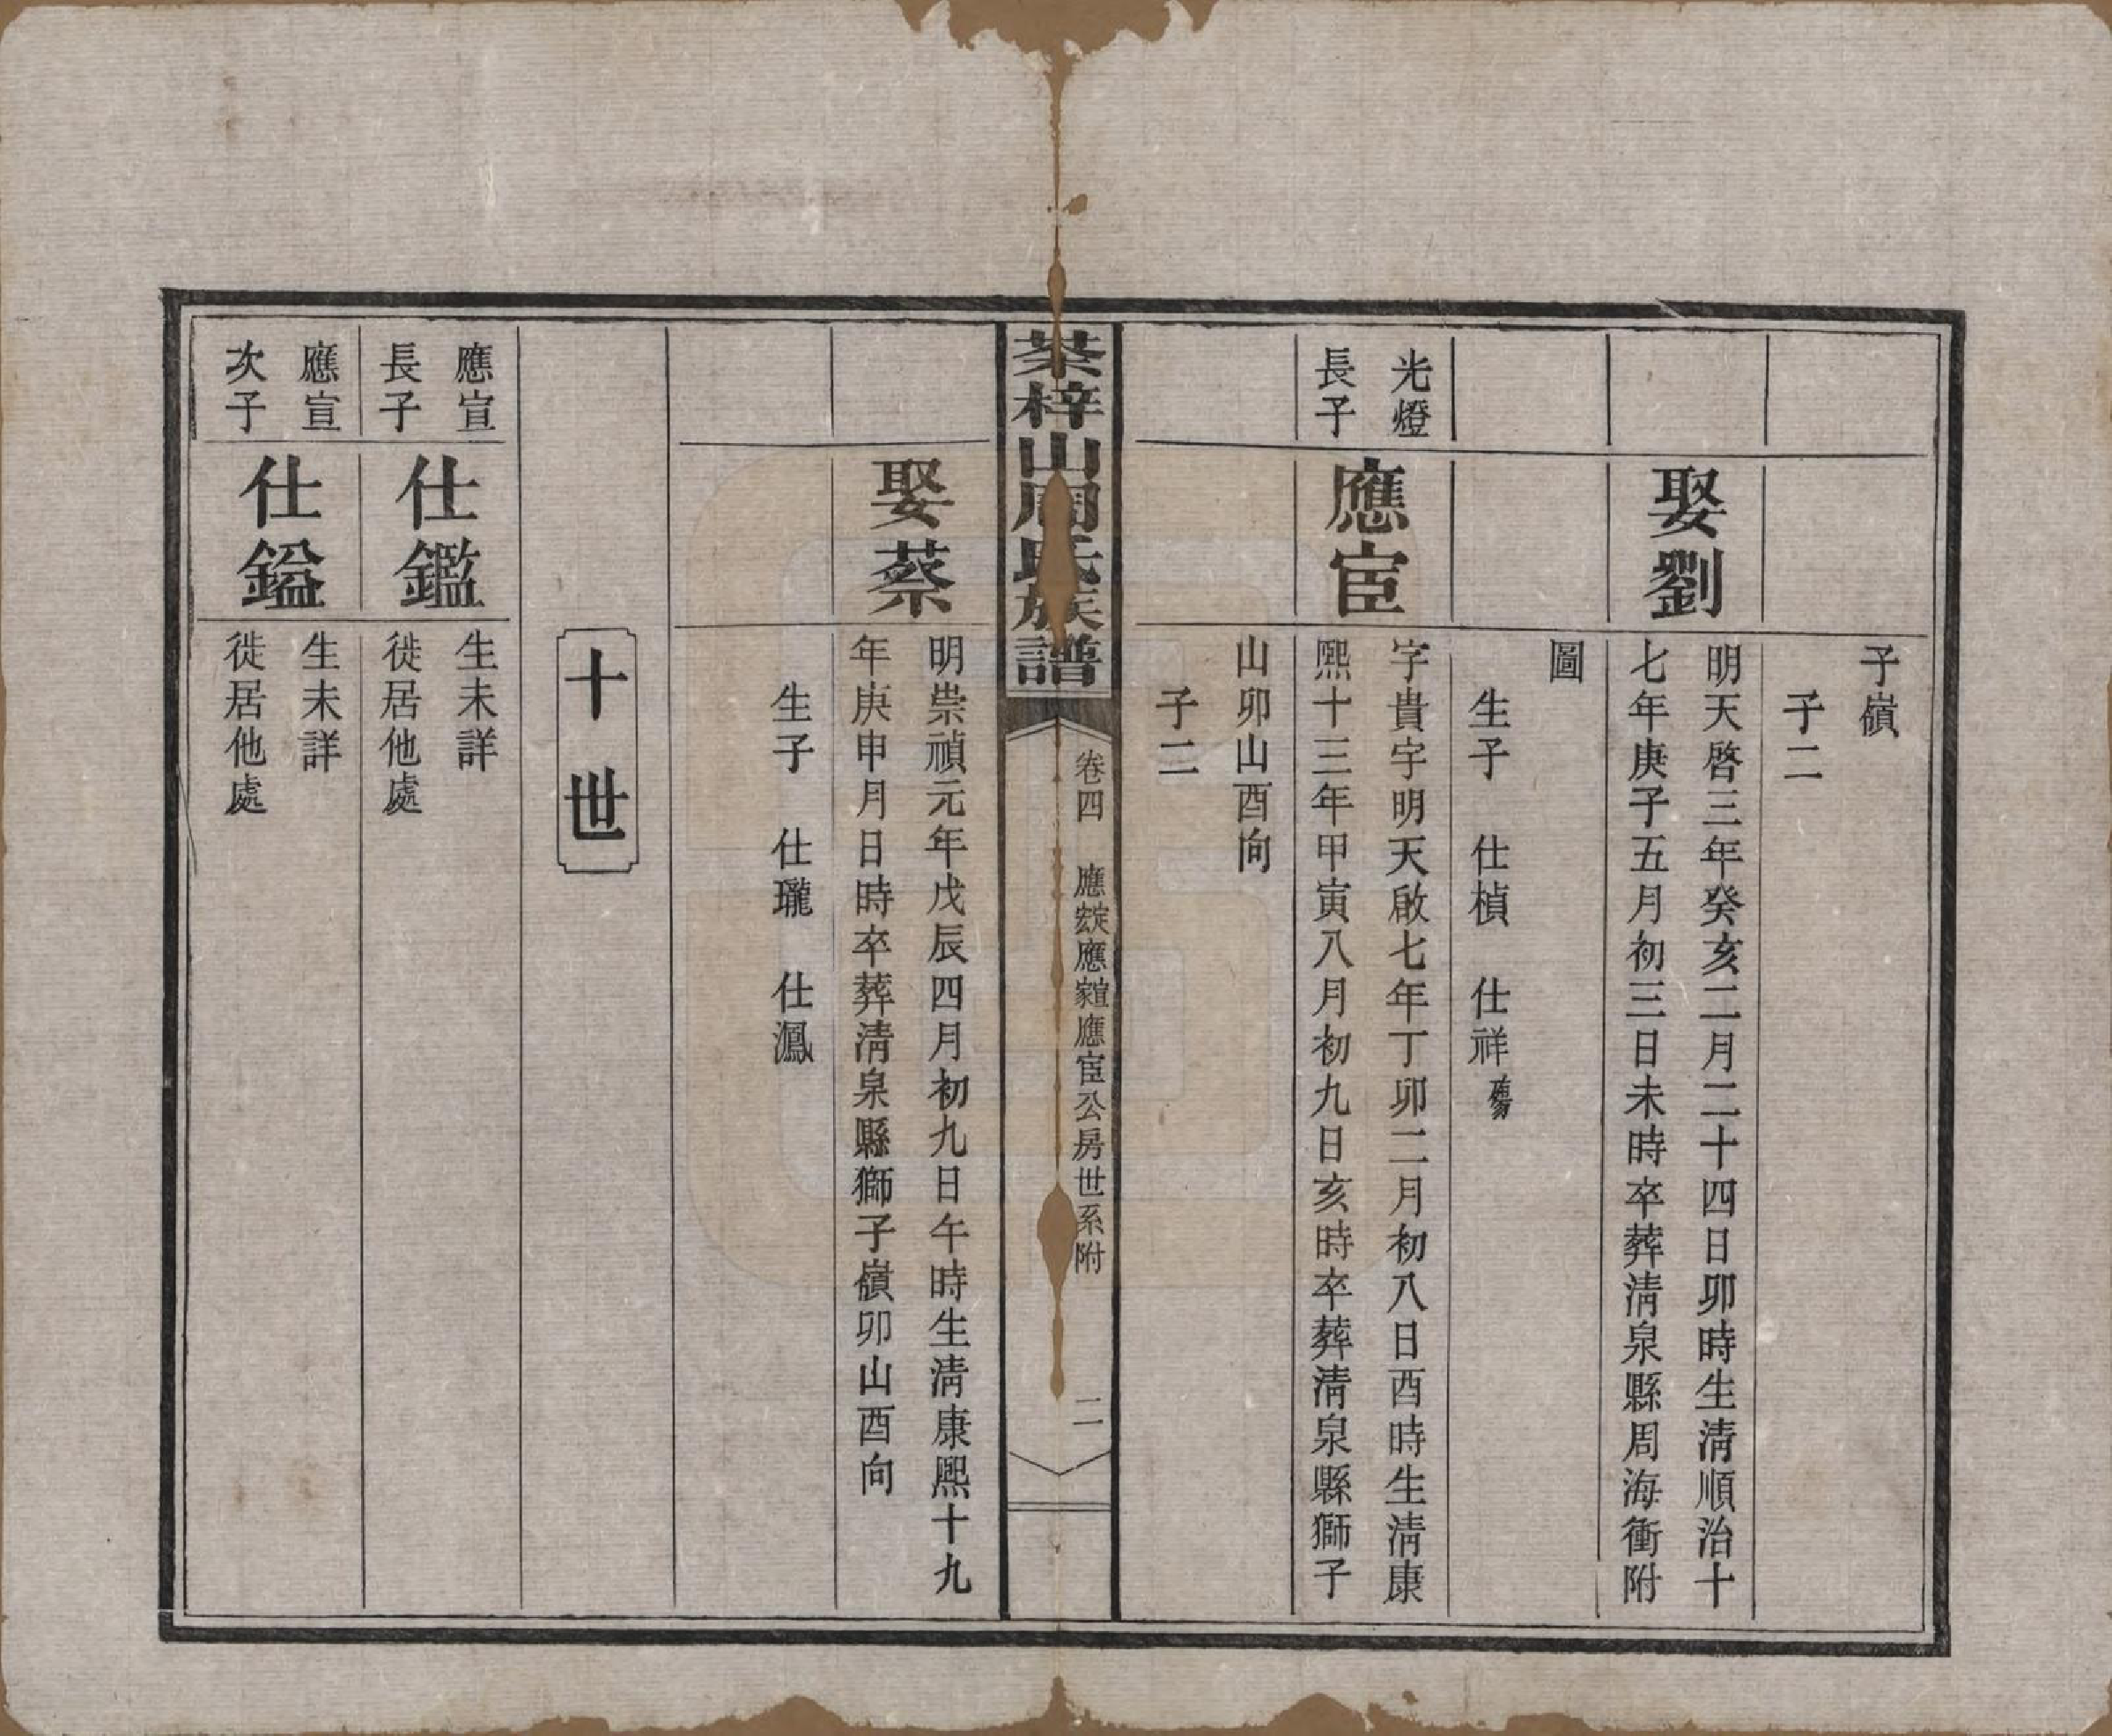 子嶺
子二
娶劉
明天啓三年癸亥二月二十四日卯時生清順治十
七年庚子五月初三日未時卒葬清泉縣周海衝附
圖
生子 仕楨 仕祥殤
光燈
長子
應宦
字貴宇明天啟七年丁卯二月初八日酉時生清康
熙十三年甲寅八月初九日亥時卒葬清泉縣獅子
山卯山酉向
子二
茶梓山周氏族譜
卷四 應宏應定應家應宣應宦公房世系附 二
娶蔡
明崇禎元年戊辰四月初九日午時生清康熙十九
年庚申月日時卒葬清泉縣獅子嶺卯山酉向
生子 仕瓏 仕鳳
十世
應宣
長子
仕鑑
生未詳
徙居他處
應宣
次子
仕鎰
生未詳
徙居他處